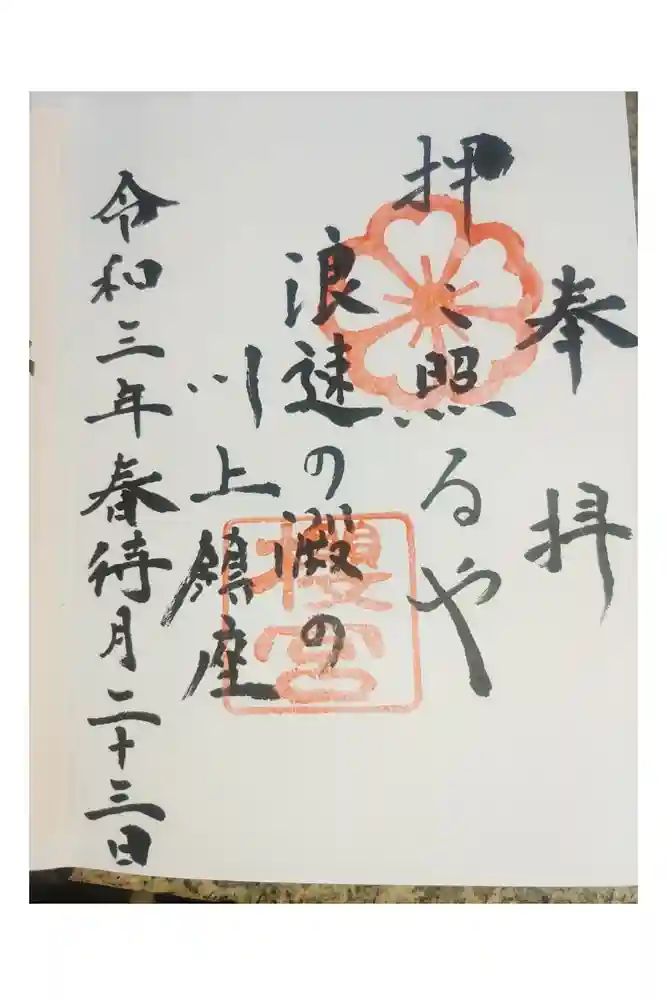 奉拝
押照るや
浪速の澱の
川上鎮座
令和三年春待月二十三日
櫻宮